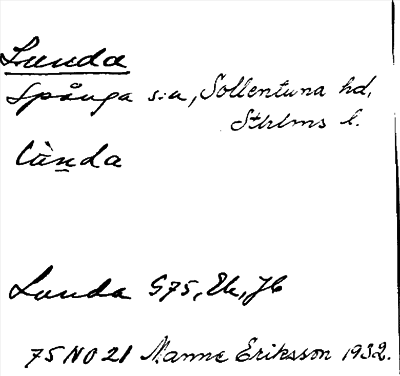 Lunda
Spånga s:n, Sollentuna hd,
Sthlms l.
lùnda
Lunda G75, Ek, JC
75 NO 21 Manne Eriksson 1932.